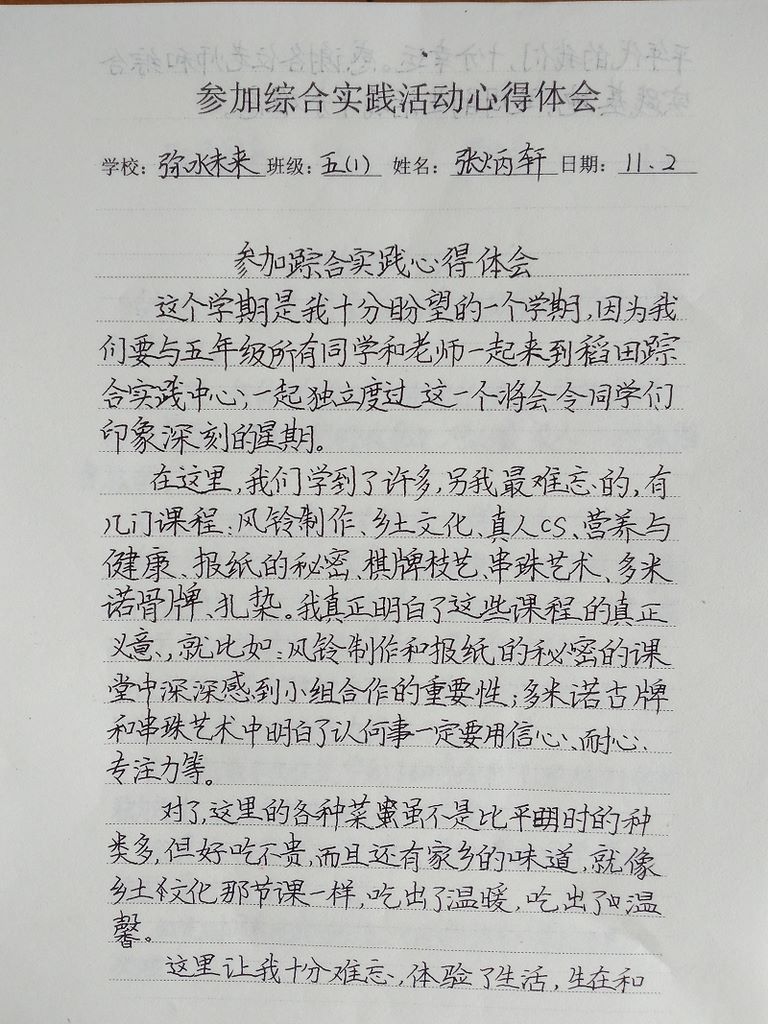 参加综合实践活动心得体会
学校：弥水未来 班级：五(1) 姓名：张炳轩 日期：11.2
参加踪合实践心得体会
这个学期是我十分盼望的一个学期,因为我
们要与五年级所有同学和老师一起来到稻田踪
合实践中心,一起独立度过这一个将会令同学们
印象深刻的星期。
在这里,我们学到了许多,另我最难忘的,有
几门课程:风铃制作、乡土文化、真人CS、营养与
健康、报纸的秘密、棋牌技艺、串珠艺术、多米
诺骨牌、扎染。我真正明白了这些课程的真正
义意,就比如:风铃制作和报纸的秘密的课
堂中深深感到小组合作的重要性;多米诺古牌
和串珠艺术中明白了认何事一定要用信心、耐心、
专注力等。
对了,这里的各种菜虽不是比平时的种
类多,但好吃不贵,而且还有家乡的味道,就像
乡土文化那节课一样,吃出了温暖,吃出了温
馨。
这里让我十分难忘,体验了生活,生在和